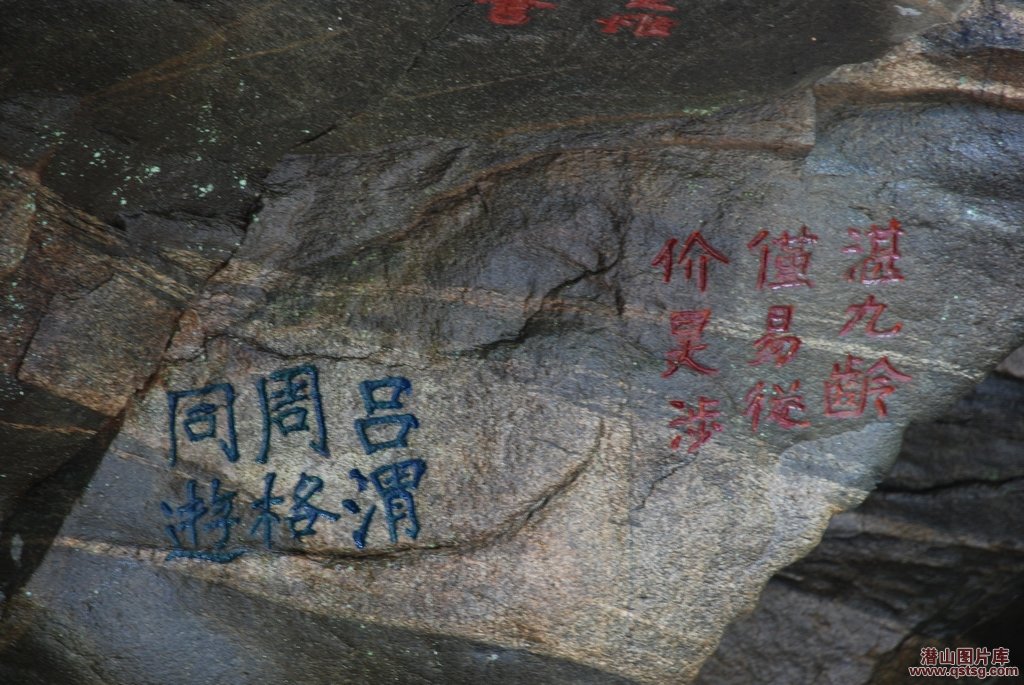 湛九齡
僅易從
价灵涉
吕渭
周格
同遊
潜山图片库
www.qstsg.com